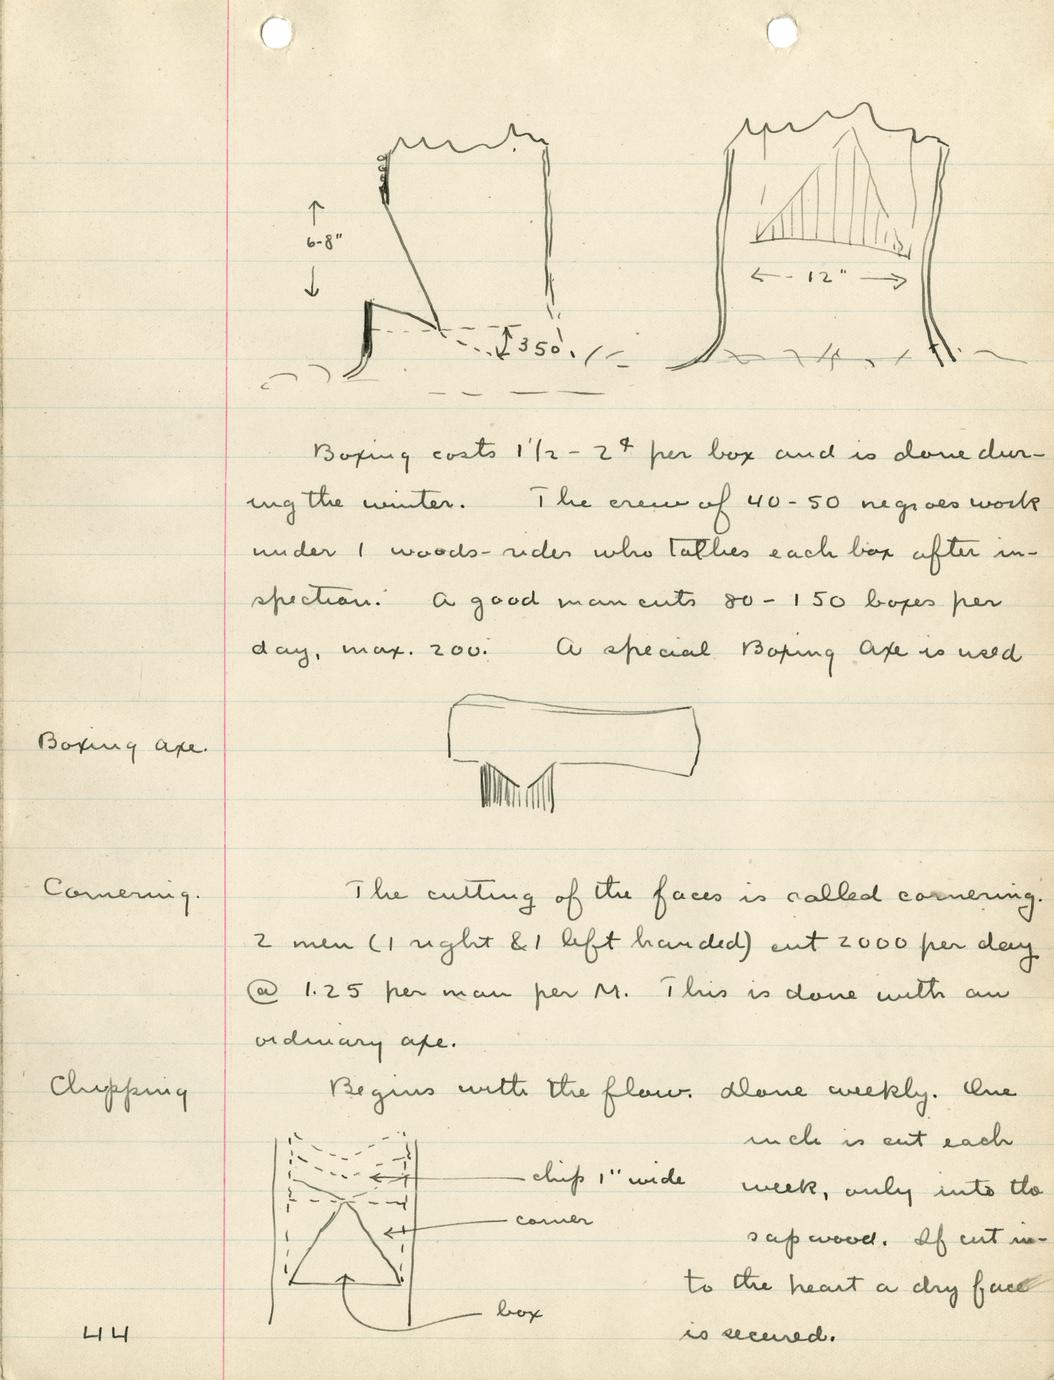 6-8"
12"
350.
Boxing costs 1 1/2 - 2¢ per box and is done dur-
ing the winter. The crew of 40-50 negroes work
under 1 woods-rider who tallies each box after in-
spection. A good man cuts 80 - 150 boxes per
day, max. 200. A special Boxing Axe is used
Boxing axe.
Cornering.
The cutting of the faces is called cornering.
2 men (1 right & 1 left handed) cut 2000 per day
@ 1.25 per man per M. This is done with an
ordinary axe.
Chipping
Begins with the flow. Done weekly. One
inch is cut each
week, only into the
sapwood. If cut in-
to the heart a dry face
is secured.
chip 1" wide
corner
box
44